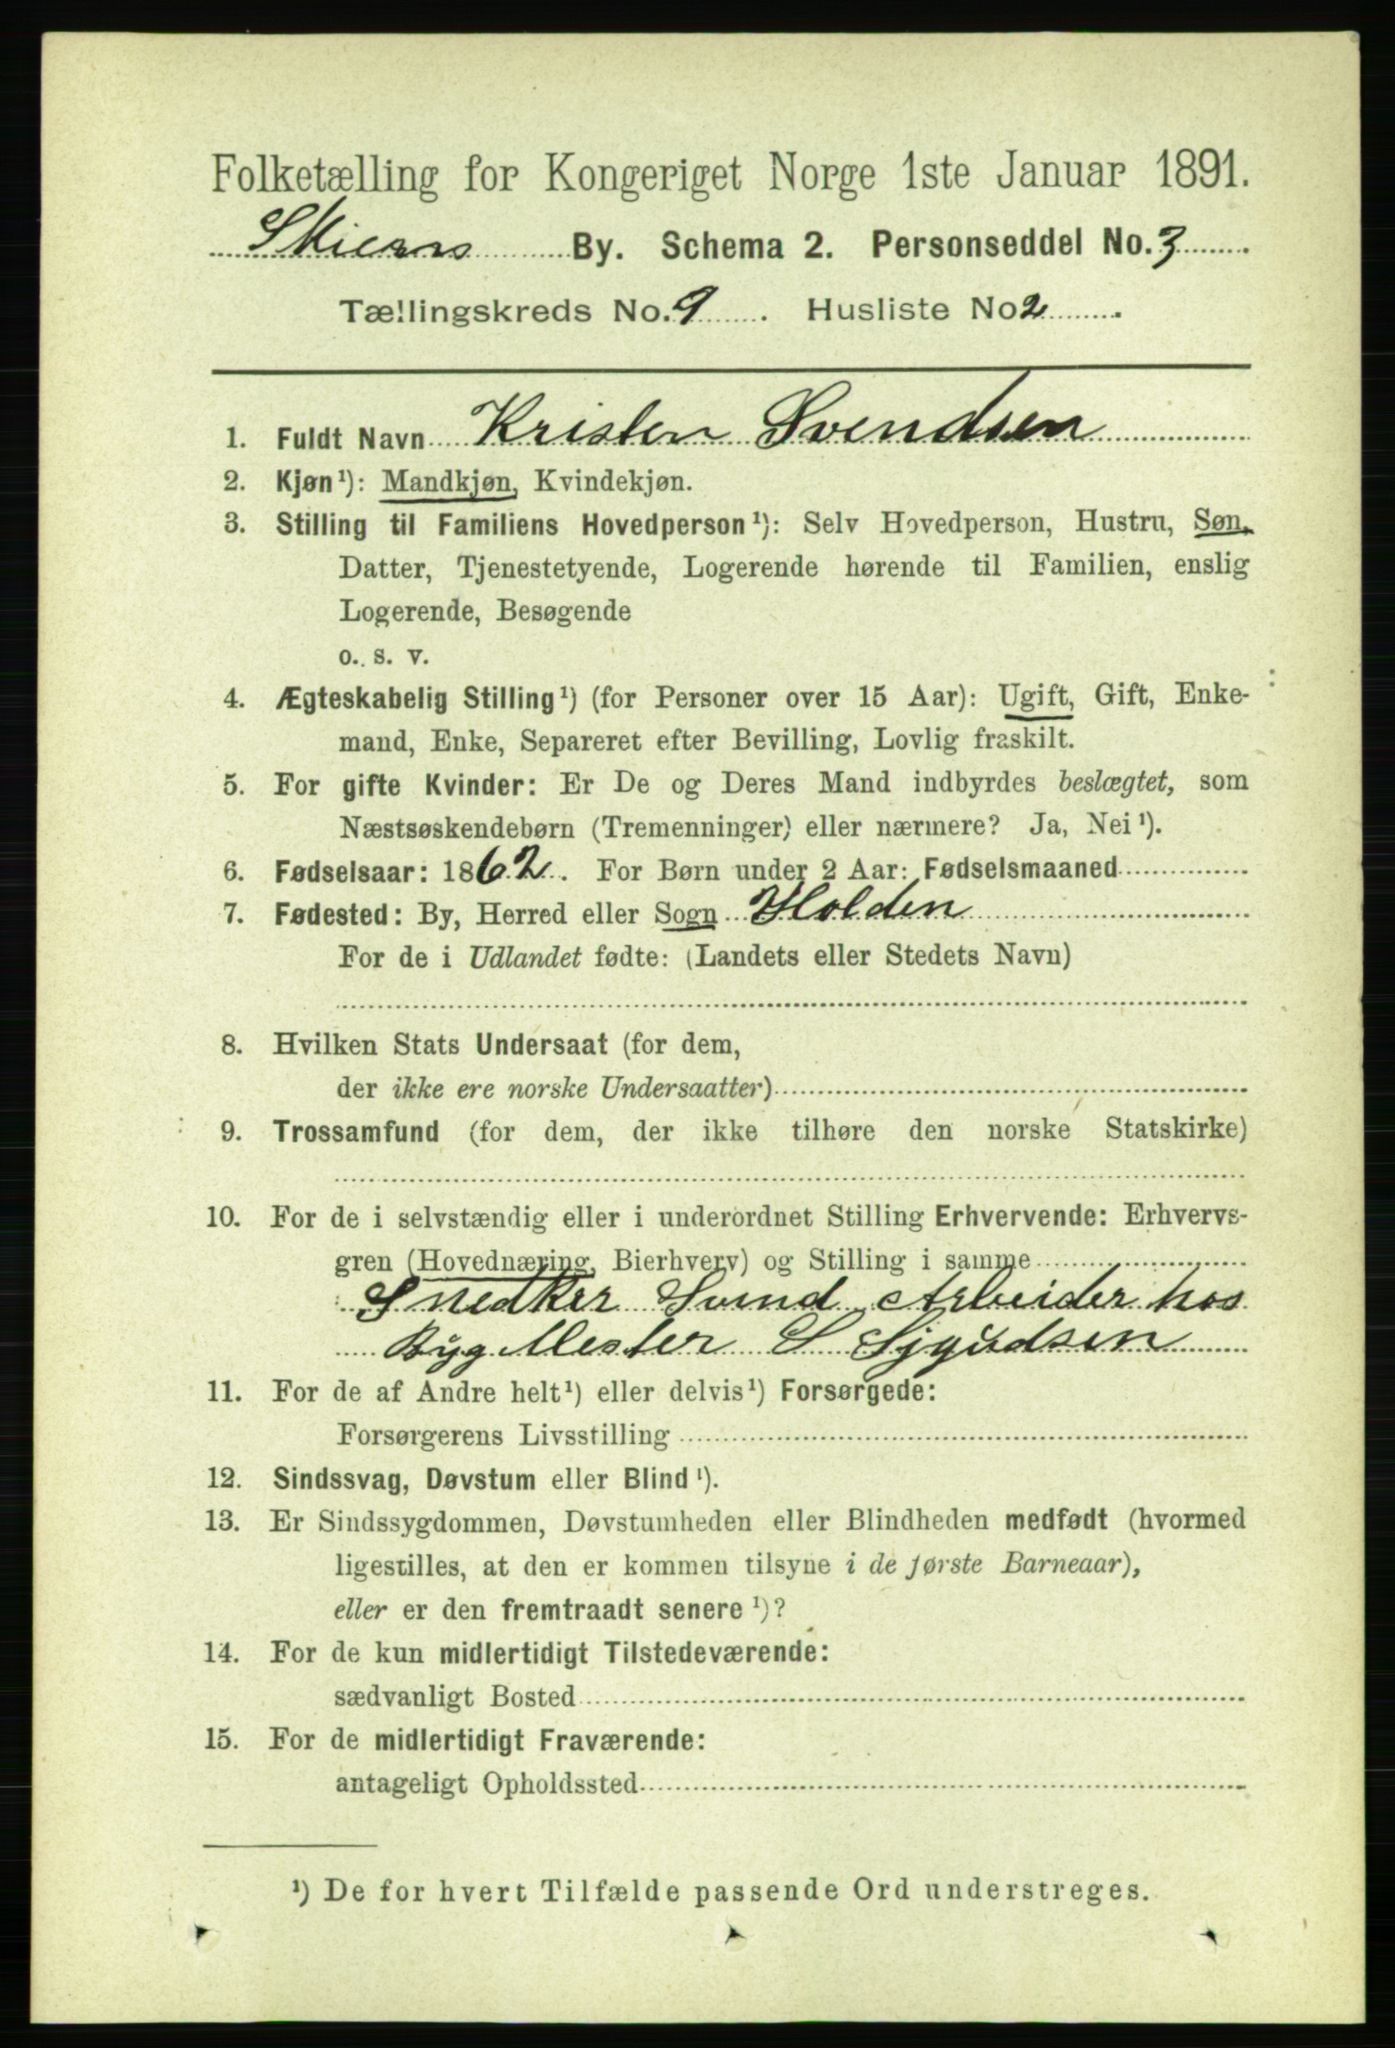 Folketælling for Kongeriget Norge 1ste Januar 1891.
Skiens By. Schema 2. Personseddel No. 3
Tællingskreds No. 9. Husliste No 2.
1. Fuldt Navn Kristen Svendsen
2. Kjøn¹): Mandkjøn, Kvindekjøn.
3. Stilling til Familiens Hovedperson¹): Selv Hovedperson, Hustru, Søn,
Datter, Tjenestetyende, Logerende hørende til Familien, enslig
Logerende, Besøgende
o. s. v.
4. Ægteskabelig Stilling¹) (for Personer over 15 Aar): Ugift, Gift, Enke-
mand, Enke, Separeret efter Bevilling, Lovlig fraskilt.
5. For gifte Kvinder: Er De og Deres Mand indbyrdes beslægtet, som
Næstsøskendebørn (Tremenninger) eller nærmere? Ja, Nei¹).
6. Fødselsaar: 1862. For Børn under 2 Aar: Fødselsmaaned
7. Fødested: By, Herred eller Sogn Holden
For de i Udlandet fødte: (Landets eller Stedets Navn)
8. Hvilken Stats Undersaat (for dem,
der ikke ere norske Undersaatter)
9. Trossamfund (for dem, der ikke tilhøre den norske Statskirke)
10. For de i selvstændig eller i underordnet Stilling Erhvervende: Erhvervs-
gren (Hovednæring, Bierhverv) og Stilling i samme
Snedker Svend Arbeider hos
Byg Mester S
11. For de af Andre helt¹) eller delvis¹) Forsørgede:
Forsørgerens Livsstilling
12. Sindssvag, Døvstum eller Blind¹).
13. Er Sindssygdommen, Døvstumheden eller Blindheden medfødt (hvormed
ligestilles, at den er kommen tilsyne i de første Barneaar),
eller er den fremtraadt senere¹)?
14. For de kun midlertidigt Tilstedeværende:
sædvanligt Bosted
15. For de midlertidigt Fraværende:
antageligt Opholdssted
¹) De for hvert Tilfælde passende Ord understreges.